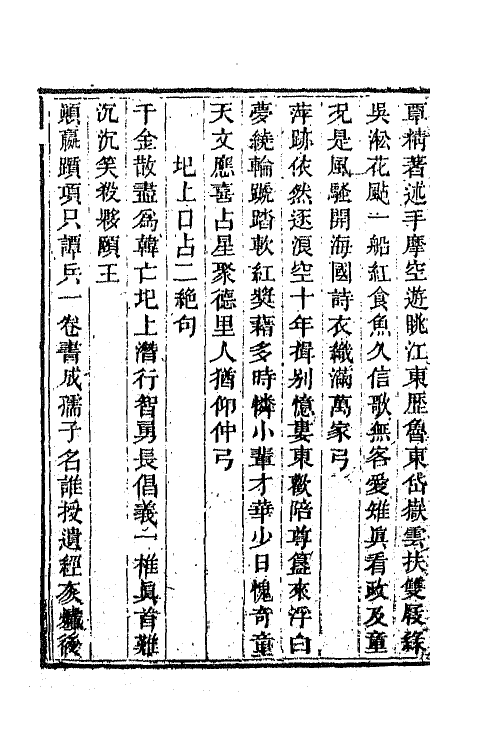 覃精著述手摩空遊眺江東歷魯東岱嶽雲扶雙屐綠
吳淞花颭一船紅食魚久信歌無客愛雉眞看政及童
况是風騷開海國詩衣織滿萬家弓
萍跡依然逐浪空十年揖别憶婁東歡陪尊簋來浮白
夢繞輪蹏踏軟紅奬藉多時憐小輩才華少日愧奇童
天文應喜占星聚德里人猶仰仲弓
圯上口占二絶句
千金散盡爲韓亡圯上潛行智勇長倡義一椎眞首難
沉沉笑殺夥頤王
顚嬴蹟項只譚兵一卷書成孺子名誰授遺經亥
後